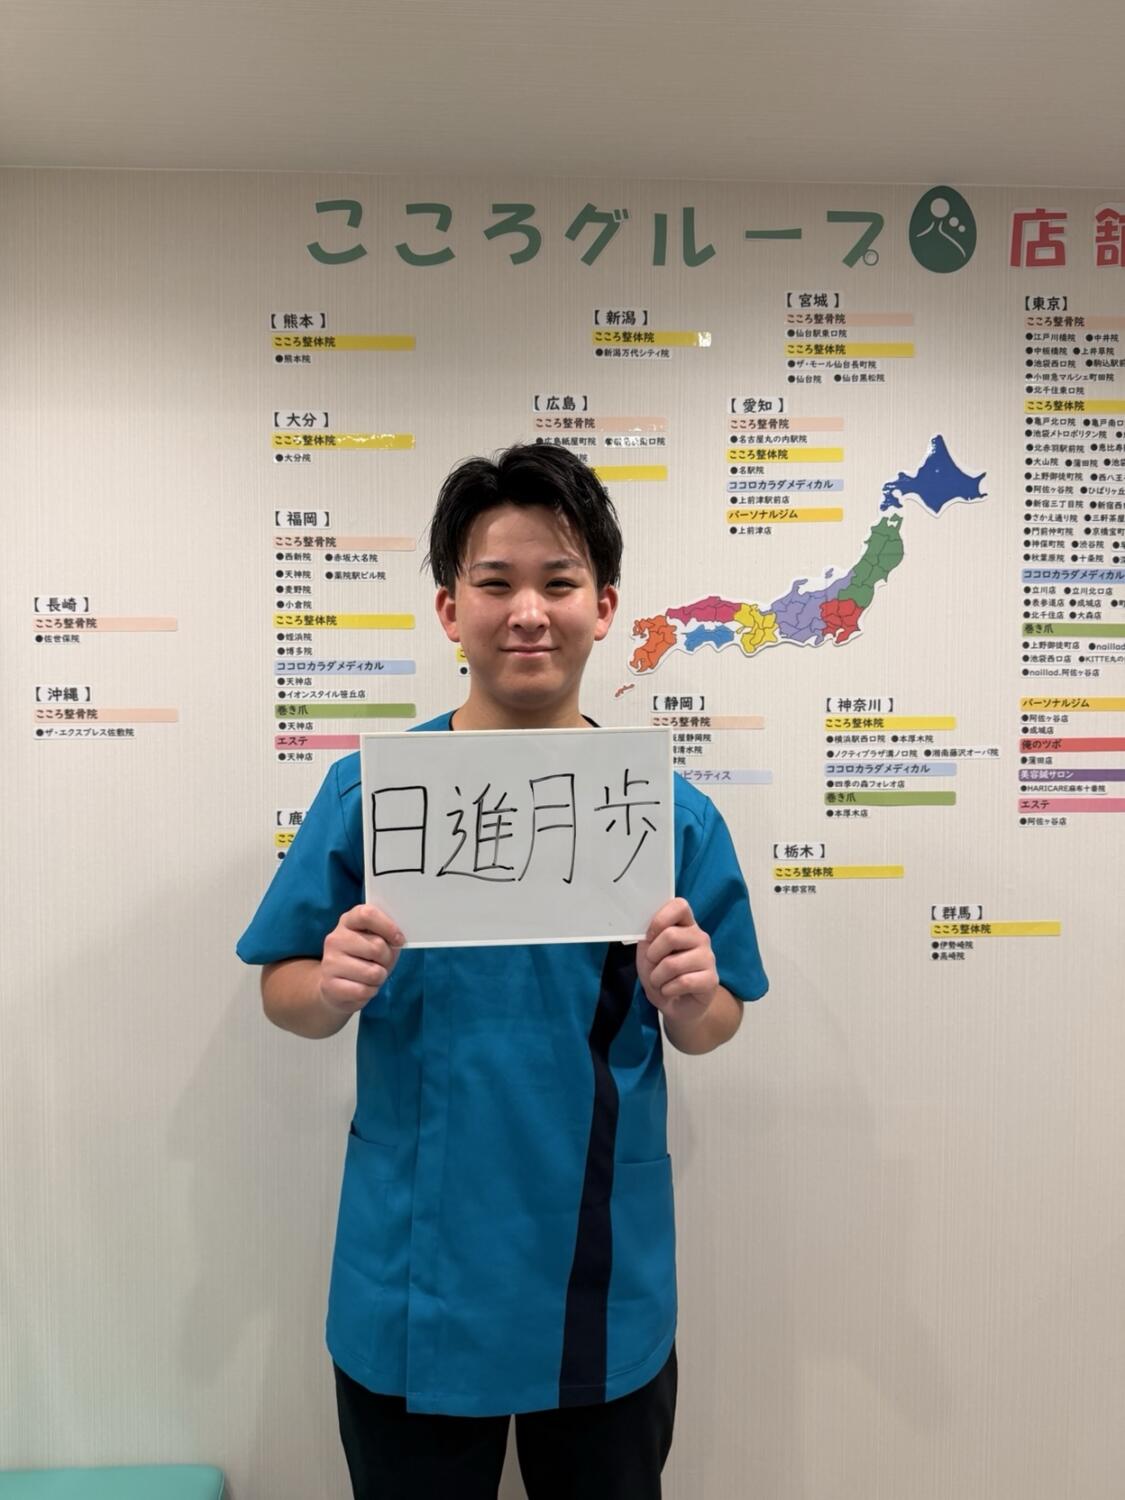 こころグループ 店舗
【 熊本 】
こころ整体院
●熊本院
【 大分 】
こころ整体院
●大分院
【 福岡 】
こころ整骨院
●西新院 ●赤坂大名院
●天神院 ●薬院駅ビル院
●麦野院
●小倉院
こころ整体院
●姪浜院
●博多院
ココロカラダメディカル
●天神店
●イオンスタイル笹丘店
巻き爪
●天神店
エステ
●天神店
【 長崎 】
こころ整骨院
●佐世保院
【 沖縄 】
こころ整骨院
●ザ・エクスプレス佐敷院
【 新潟 】
こころ整体院
●新潟万代シティ院
【 広島 】
こころ整骨院
●広島紙屋町院
【 宮城 】
こころ整骨院
●仙台駅東口院
こころ整体院
●ザ・モール仙台長町院
●仙台院 ●仙台黒松院
【 愛知 】
こころ整骨院
●名古屋丸の内駅院
こころ整体院
●名駅院
ココロカラダメディカル
●上前津駅前店
パーソナルジム
●上前津店
【 静岡 】
こころ整骨院
ピラティス
【 神奈川 】
こころ整体院
●横浜駅西口院 ●本厚木院
●ノクティプラザ溝ノ口院 ●湘南藤沢オーパ院
ココロカラダメディカル
●四季の森フォレオ店
巻き爪
●本厚木店
【 栃木 】
こころ整体院
●宇都宮院
【 群馬 】
こころ整体院
●伊勢崎院
●高崎院
【東京】
こころ整骨院
●江戸川橋院 ●中井院
●中板橋院 ●上井草院
●池袋西口院 ●駒込駅前
●小田急マルシェ町田院
●北千住東口院
こころ整体院
●亀戸北口院 ●亀戸南口
●池袋メトロポリタン院
●北赤羽駅前院 ●恵比寿
●大山院 ●蒲田院 ●池袋
●上野御徒町院 ●西八王子
●阿佐ヶ谷院 ●ひばりヶ丘
●新宿三丁目院 ●新宿西
●さかえ通り院 ●三軒茶屋
●門前仲町院 ●京橋宝町
●神保町院 ●渋谷院
●秋葉原院 ●十条院
ココロカラダメディカル
●立川店 ●立川北口店
●表参道店 ●成城店
●北千住店 ●大森店
巻き爪
●上野御徒町店 ●naillad
●池袋西口店 ●KITTE丸の
●naillad.阿佐ヶ谷店
パーソナルジム
●阿佐ヶ谷店
●成城店
俺のツボ
●蒲田店
美容鍼サロン
●HARICARE麻布十番院
エステ
●阿佐ヶ谷店
日進月歩